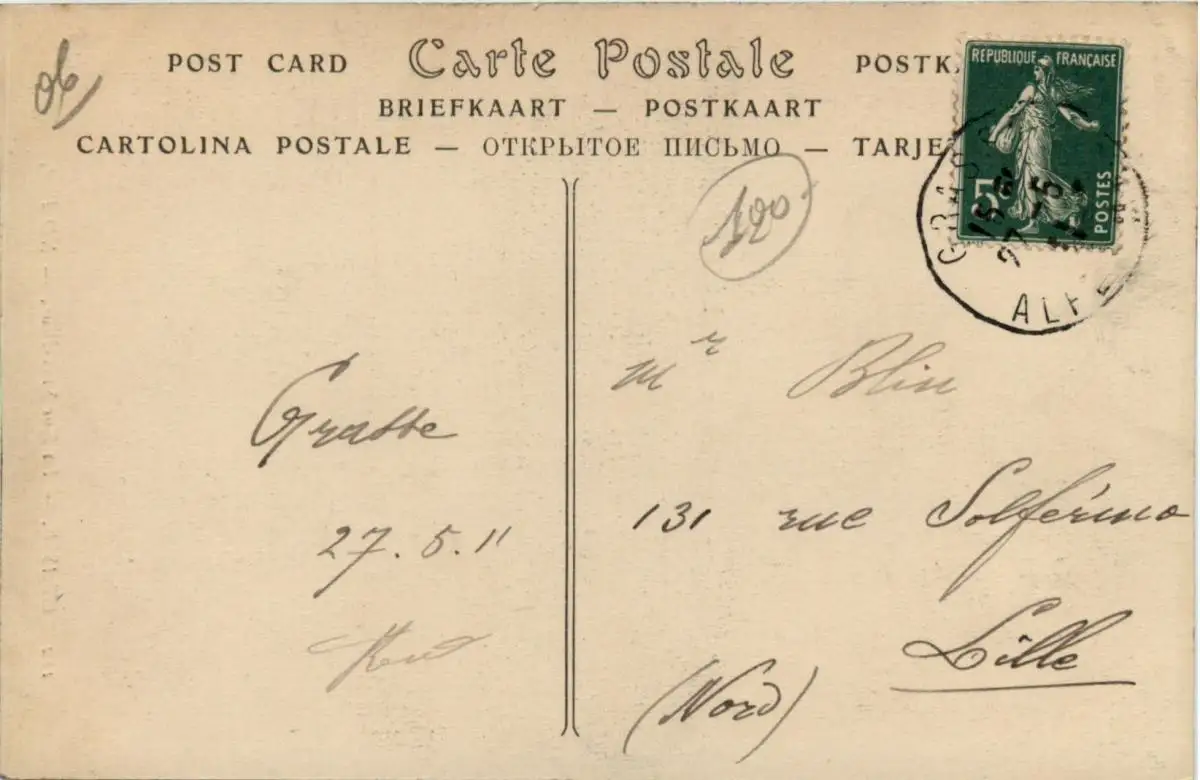 06
POST CARD Carte Postale POSTK
BRIEFKAART — POSTKAART
CARTOLINA POSTALE — ОТКРЫТОЕ ПИСЬМО — TARJE
REPUBLIQUE FRANÇAISE
5c
POSTES
GRASSE
ALP
27 -5
120
Grasse
27.5.11
Mr Blin
131 rue Solférino
Lille
(Nord)